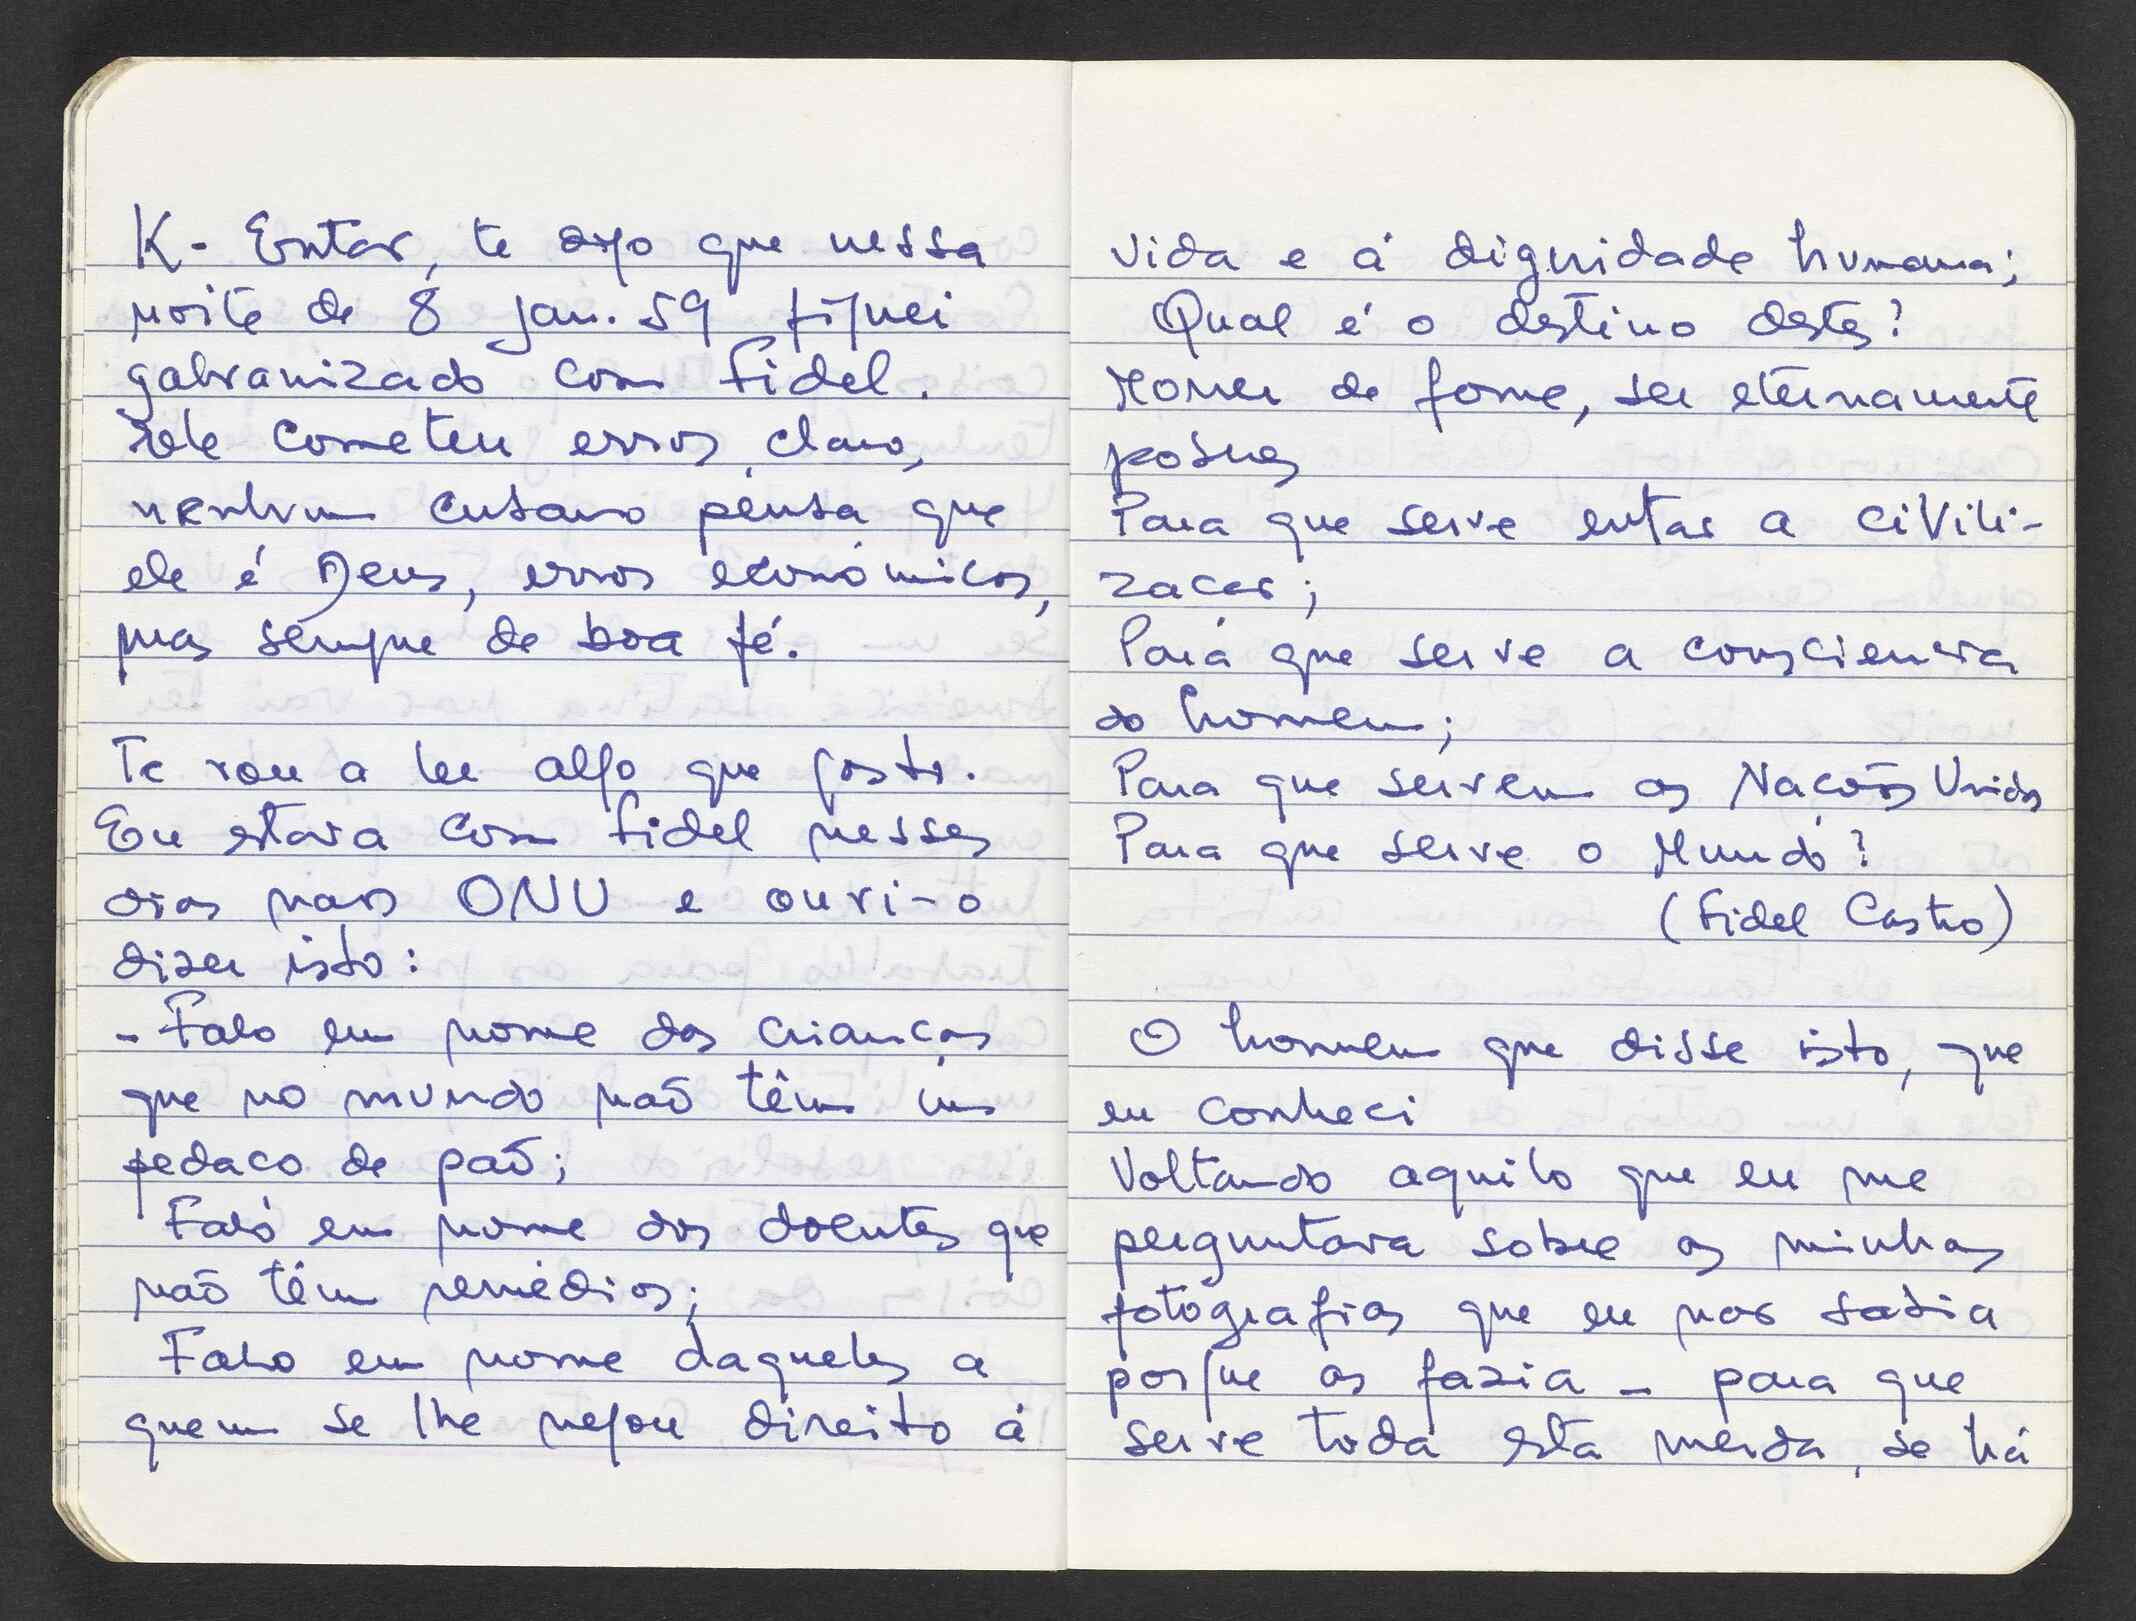 K - Entar, te digo que nessa
noite de 8 jan. 59 fiquei
galvanizado com Fidel.
Ele cometeu erros, claro,
nenhum cubano pensa que
ele é Deus, erros económicos,
mas sempre de boa fé.
Te vou a ler algo que gosto.
Eu estava com Fidel nesses
dias nas ONU e ouvi-o
dizer isto:
- Falo em nome das crianças
que no mundo naõ têm um
pedaco de paõ;
Falo em nome dos doentes que
naõ têm remédios;
Falo em nome daqueles a
quem se lhe negou direito á
vida e á dignidade humana;
Qual é o destino destes?
Morrer de fome, ser eternamente
pobres
Para que serve entao a civili-
zacao;
Para que serve a consciencia
do homem;
Para que servem as Nacoẽs Unidas
Para que serve o Mundo?
(Fidel Castro)
O homem que disse isto, que
eu conheci
Voltando aquilo que eu me
perguntava sobre as minhas
fotografias que eu nao sabia
porque as fazia - para que
serve toda esta merda, se há